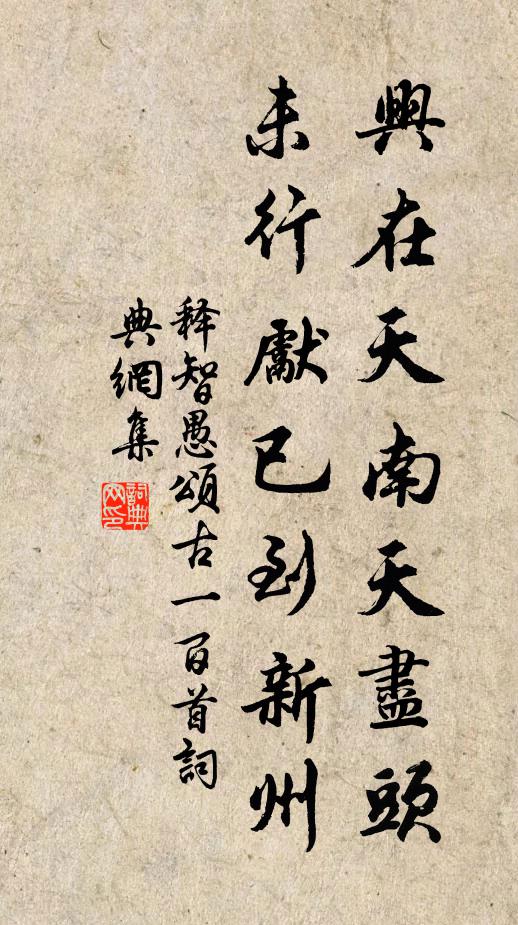 興在天南天盡頭
未行獻已到新州
释智愚頌古一百首詞
典網集
詞典
网印